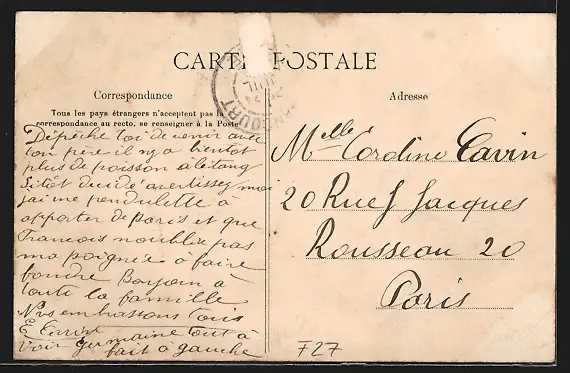 CARTE POSTALE
Correspondance
Tous les pays étrangers n'acceptent pas la
correspondance au recto, se renseigner à la Poste
Dépêche toi de venir avec
ton père il ny a bientot
plus de poisson à létang
Sitôt décidé avertissez moi
jai une pendulette à
apporter de Paris et que
Francois noublie pas
ma poignée à faire
fondre Bonjour à
toute la famille
Nvs embrassons tous
E
voir germaine tout à
fait à gauche
Adresse
Melle Cavin
20 Rue J Jacques
Rousseau 20
Paris
F27